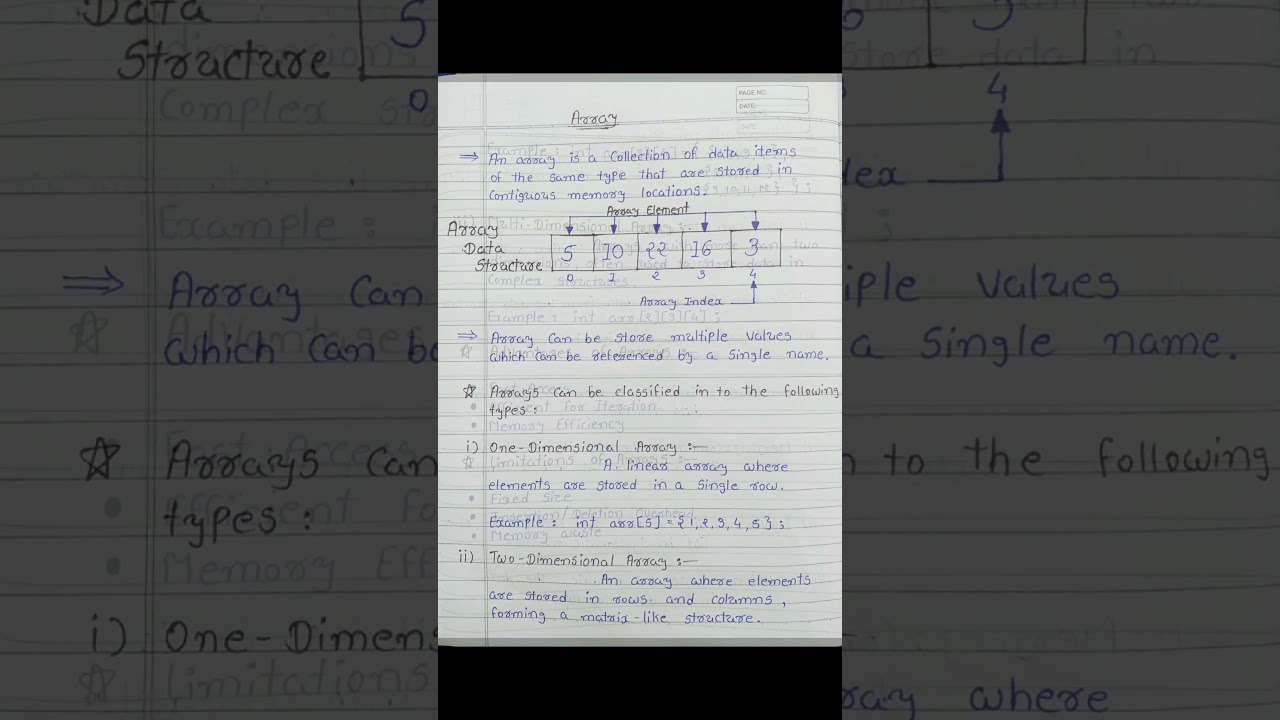 PAGE NO.
DATE:
Array
⇒ An array is a Collection of data items
of the same type that are stored in
contiguous memory locations.
Array Element
Array
Data
Structure
5 10 22 16 3
0 1 2 3 4
Array Index
⇒ Array Can be store multiple values
which can be referenced by a Single name.
☆ Arrays Can be classified in to the following
types:
i) One-Dimensional Array :—
A linear array where
elements are stored in a Single row.
Example: int arr[5] = {1,2,3,4,5};
ii) Two-Dimensional Array :—
An array where elements
are stored in rows and columns,
forming a matrix-like structure.